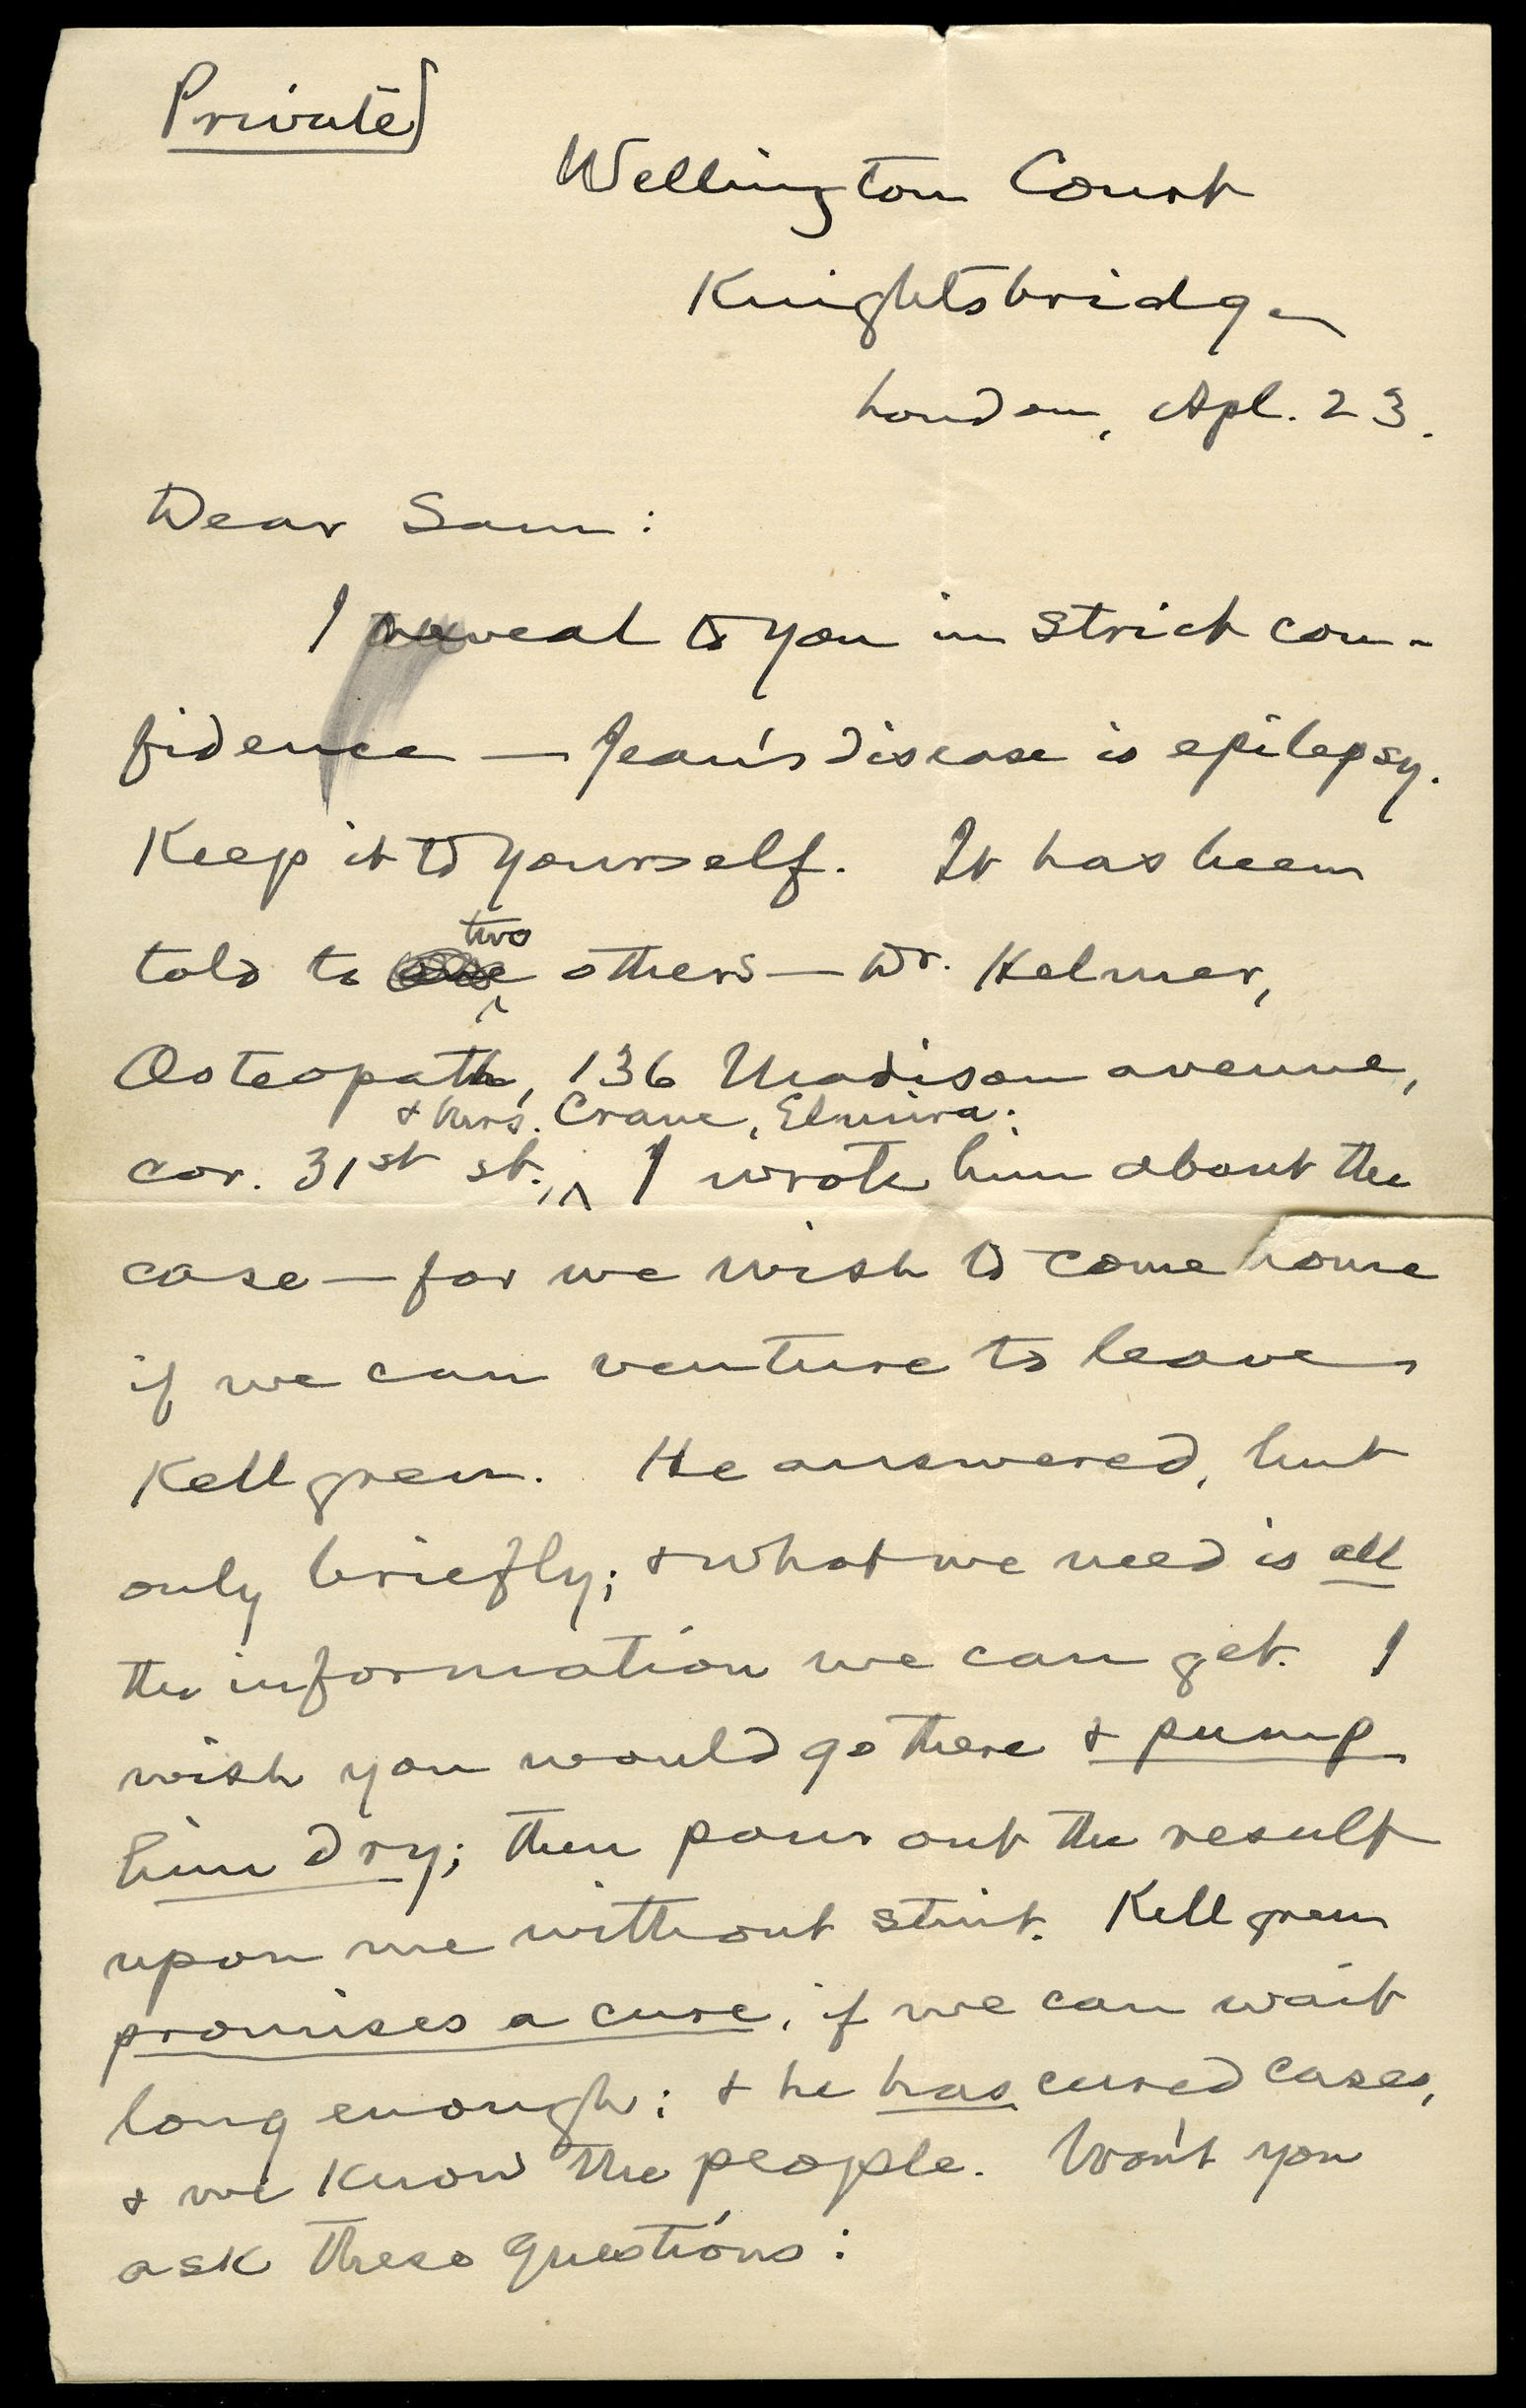 Private]
Wellington Court
Knightsbridge
London, Apl. 23.
Dear Sam:
I reveal to you in strict con-
fidence — Jean's disease is epilepsy.
Keep it to yourself. It has been
two
told to one others — Dr. Helmer,
Osteopath, 136 Madison avenue,
& Mrs. Crane, Elmira.
cor. 31st st., ^ I wrote him about the
case — for we wish to come home
if we can venture to leave
Kellgren. He answered, but
only briefly; & what we need is all
the information we can get. I
wish you would go there & pump
him dry; then pour out the result
upon me without stint. Kellgren
promises a cure, if we can wait
long enough; & he has cured cases,
& we know the people. Won't you
ask these questions: